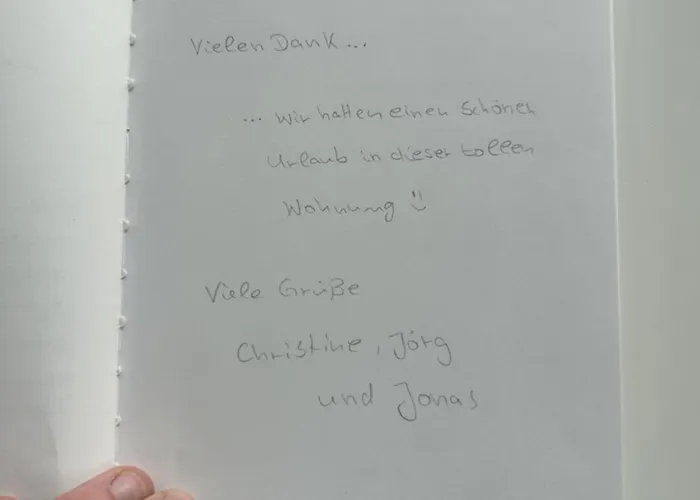 Vielen Dank...
... wir hatten einen schönen
Urlaub in dieser tollen
Wohnung :)
Viele Grüße
Christine, Jörg
und Jonas